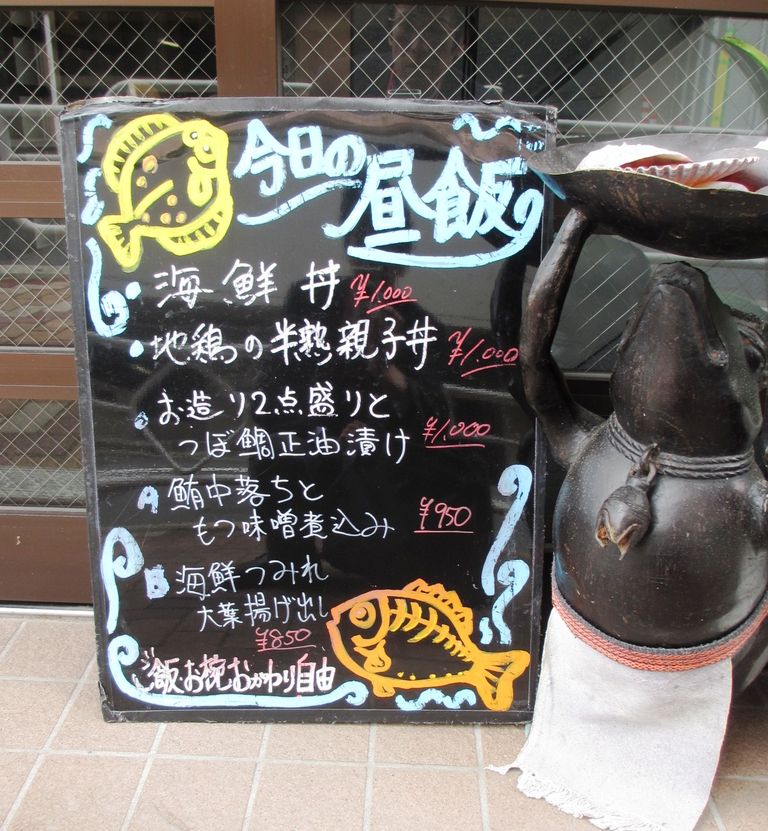 今日の昼飯
・海鮮丼 ¥1.000
・地鶏の半熟親子丼 ¥1.000
・お造り2点盛りと
つぼ鯛正油漬け ¥1.000
A 鮪中落ちと
もつ味噌煮込み ¥950
B 海鮮つみれ
大葉揚げ出し
¥850
ご飯お椀おかわり自由